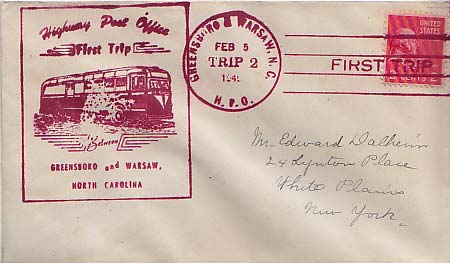 Highway Post Office
First Trip
Between
GREENSBORO and WARSAW,
NORTH CAROLINA
GREENSBORO & WARSAW, N.C.
FEB 5
TRIP 2
H.P.O.
UNITED STATES
FIRST TRIP
Mr. Edward Dalheim
24 Lynton Place
White Plains
New York.